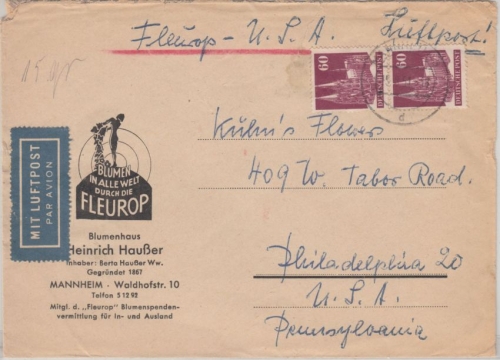 Fleurop - U.S.A. Luftpost!
60 DEUTSCHE POST
60 DEUTSCHE POST
15 gr
MIT LUFTPOST
PAR AVION
BLUMEN
IN ALLE WELT
DURCH DIE
FLEUROP
Blumenhaus
Heinrich Haußer
Inhaber: Berta Haußer Ww.
Gegründet 1867
MANNHEIM - Waldhofstr. 10
Telfon 5 12 92
Mitgl. d. „Fleurop" Blumenspenden-
vermittlung für In- und Ausland
Kuhn's Flowers
409 W. Tabor Road.
Philadelphia 20
U.S.A.
Pennsylvania